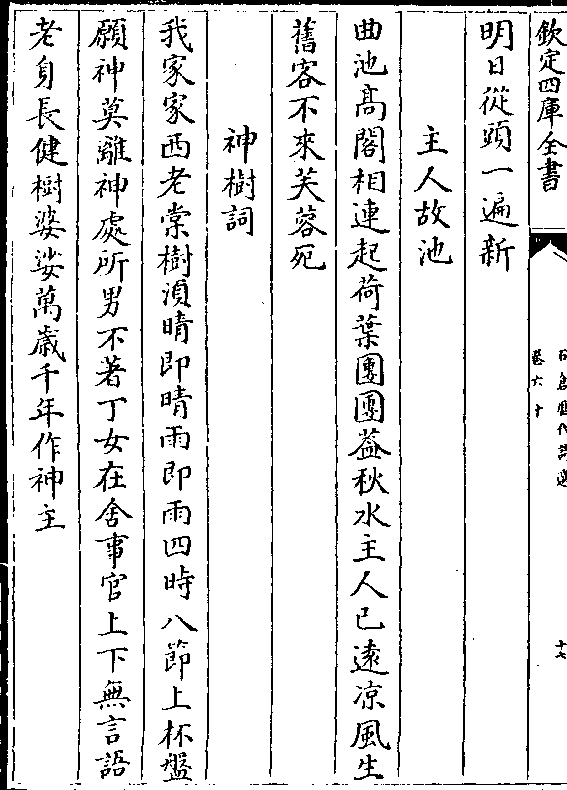 欽定四庫全書
卷六十
十六
明日從頭一遍新
主人故池
曲池髙閣相連起荷葉團團葢秋水主人已逺凉風生
舊客不來芙蓉死
神樹詞
我家家西老棠樹湏晴即晴雨即雨四時八節上杯盤
願神莫離神處所男不著丁女在舍事官上下無言語
老身長健樹婆娑萬歲千年作神主